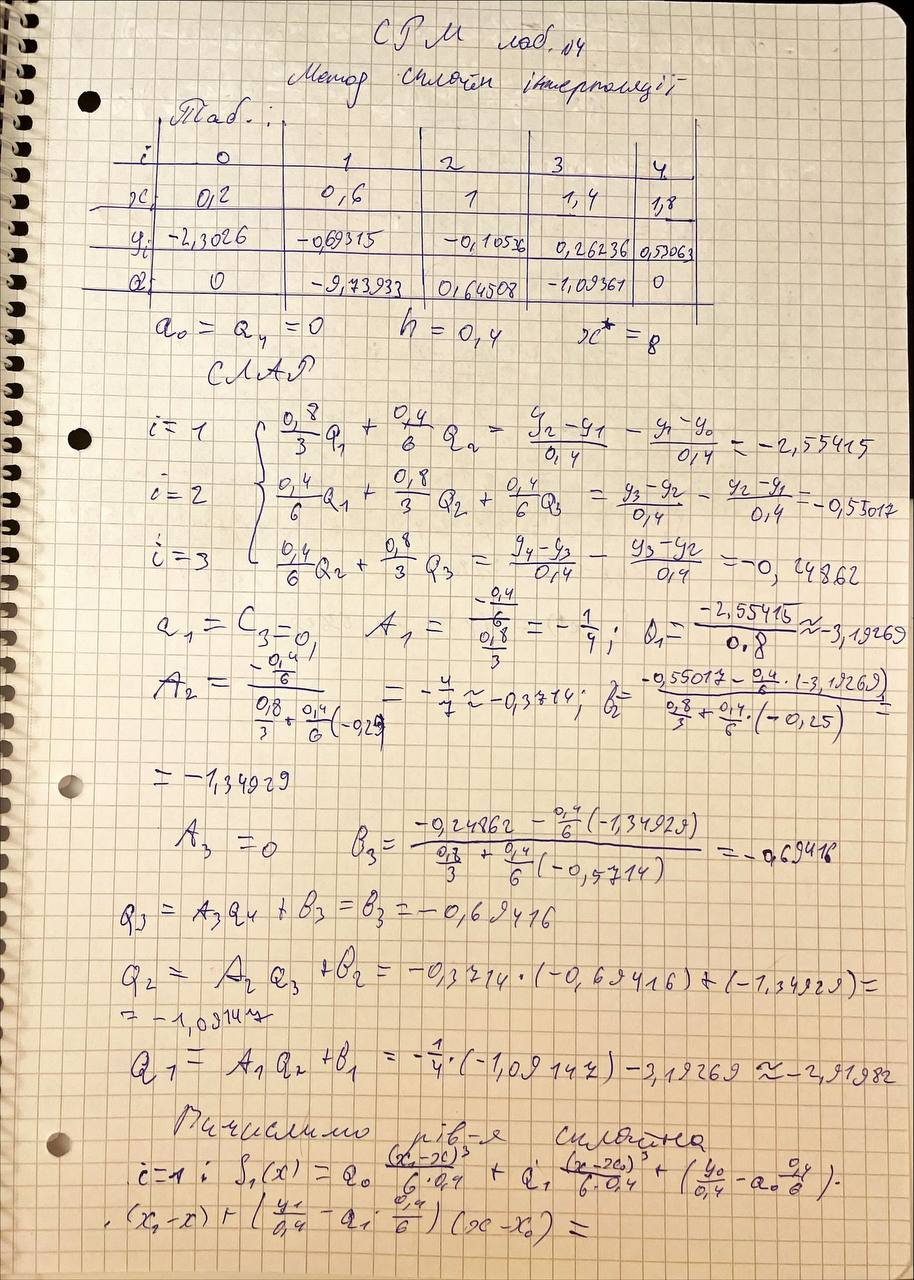 СРМ лаб. №4
Метод сплайн інтерполяції
Таб.:
i 0 1 2 3 4
xᵢ 0,2 0,6 1 1,4 1,8
yᵢ -2,3026 -0,69315 -0,10536 0,26236 0,53063
Q 0 -9,73933 0,64508 -1,09361 0
a₀ = Q₄ = 0 h = 0,4 x* = 8
СЛАР
i = 1 { 0,8/3 Q₁ + 0,4/6 Q₂ = (y₂-y₁)/0,4 - (y₁-y₀)/0,4 = -2,55415
i = 2 0,4/6 Q₁ + 0,8/3 Q₂ + 0,4/6 Q₃ = (y₃-y₂)/0,4 - (y₂-y₁)/0,4 = -0,55017
i = 3 0,4/6 Q₂ + 0,8/3 Q₃ = (y₄-y₃)/0,4 - (y₃-y₂)/0,4 = -0,24862
a₁ = C₃ = 0, A₁ = (-0,4/6)/(0,8/3) = -1/4; B₁ = -2,55415/0.8 ≈ -3,19269
A₂ = (-0,4/6)/(0,8/3 + 0,4/6 (-0,25)) = -4/7 ≈ -0,3714; B₂ = (-0,55017 - 0,4/6 · (-3,19269))/(0,8/3 + 0,4/6 · (-0,25)) =
= -1,34929
A₃ = 0 B₃ = (-0,24862 - 0,4/6 (-1,34929))/(0,8/3 + 0,4/6 (-0,5714)) = -0,69416
Q₃ = A₃Q₄ + B₃ = B₃ = -0,69416
Q₂ = A₂ Q₃ + B₂ = -0,3714 · (-0,69416) + (-1,34929) =
= -1,09147
Q₁ = A₁ Q₂ + B₁ = -1/4 · (-1,09147) - 3,19269 ≈ -2,91982
Вичислимо рів-я сплайна
i=1: S₁(x) = Q₀ (x₁-x)³/(6·0,4) + Q₁ (x-x₀)³/(6·0,4) + (y₀/0,4 - a₀ 0,4/6) ·
· (x₁-x) + (y₁/0,4 - a₁ · 0,4/6) (x-x₀) =